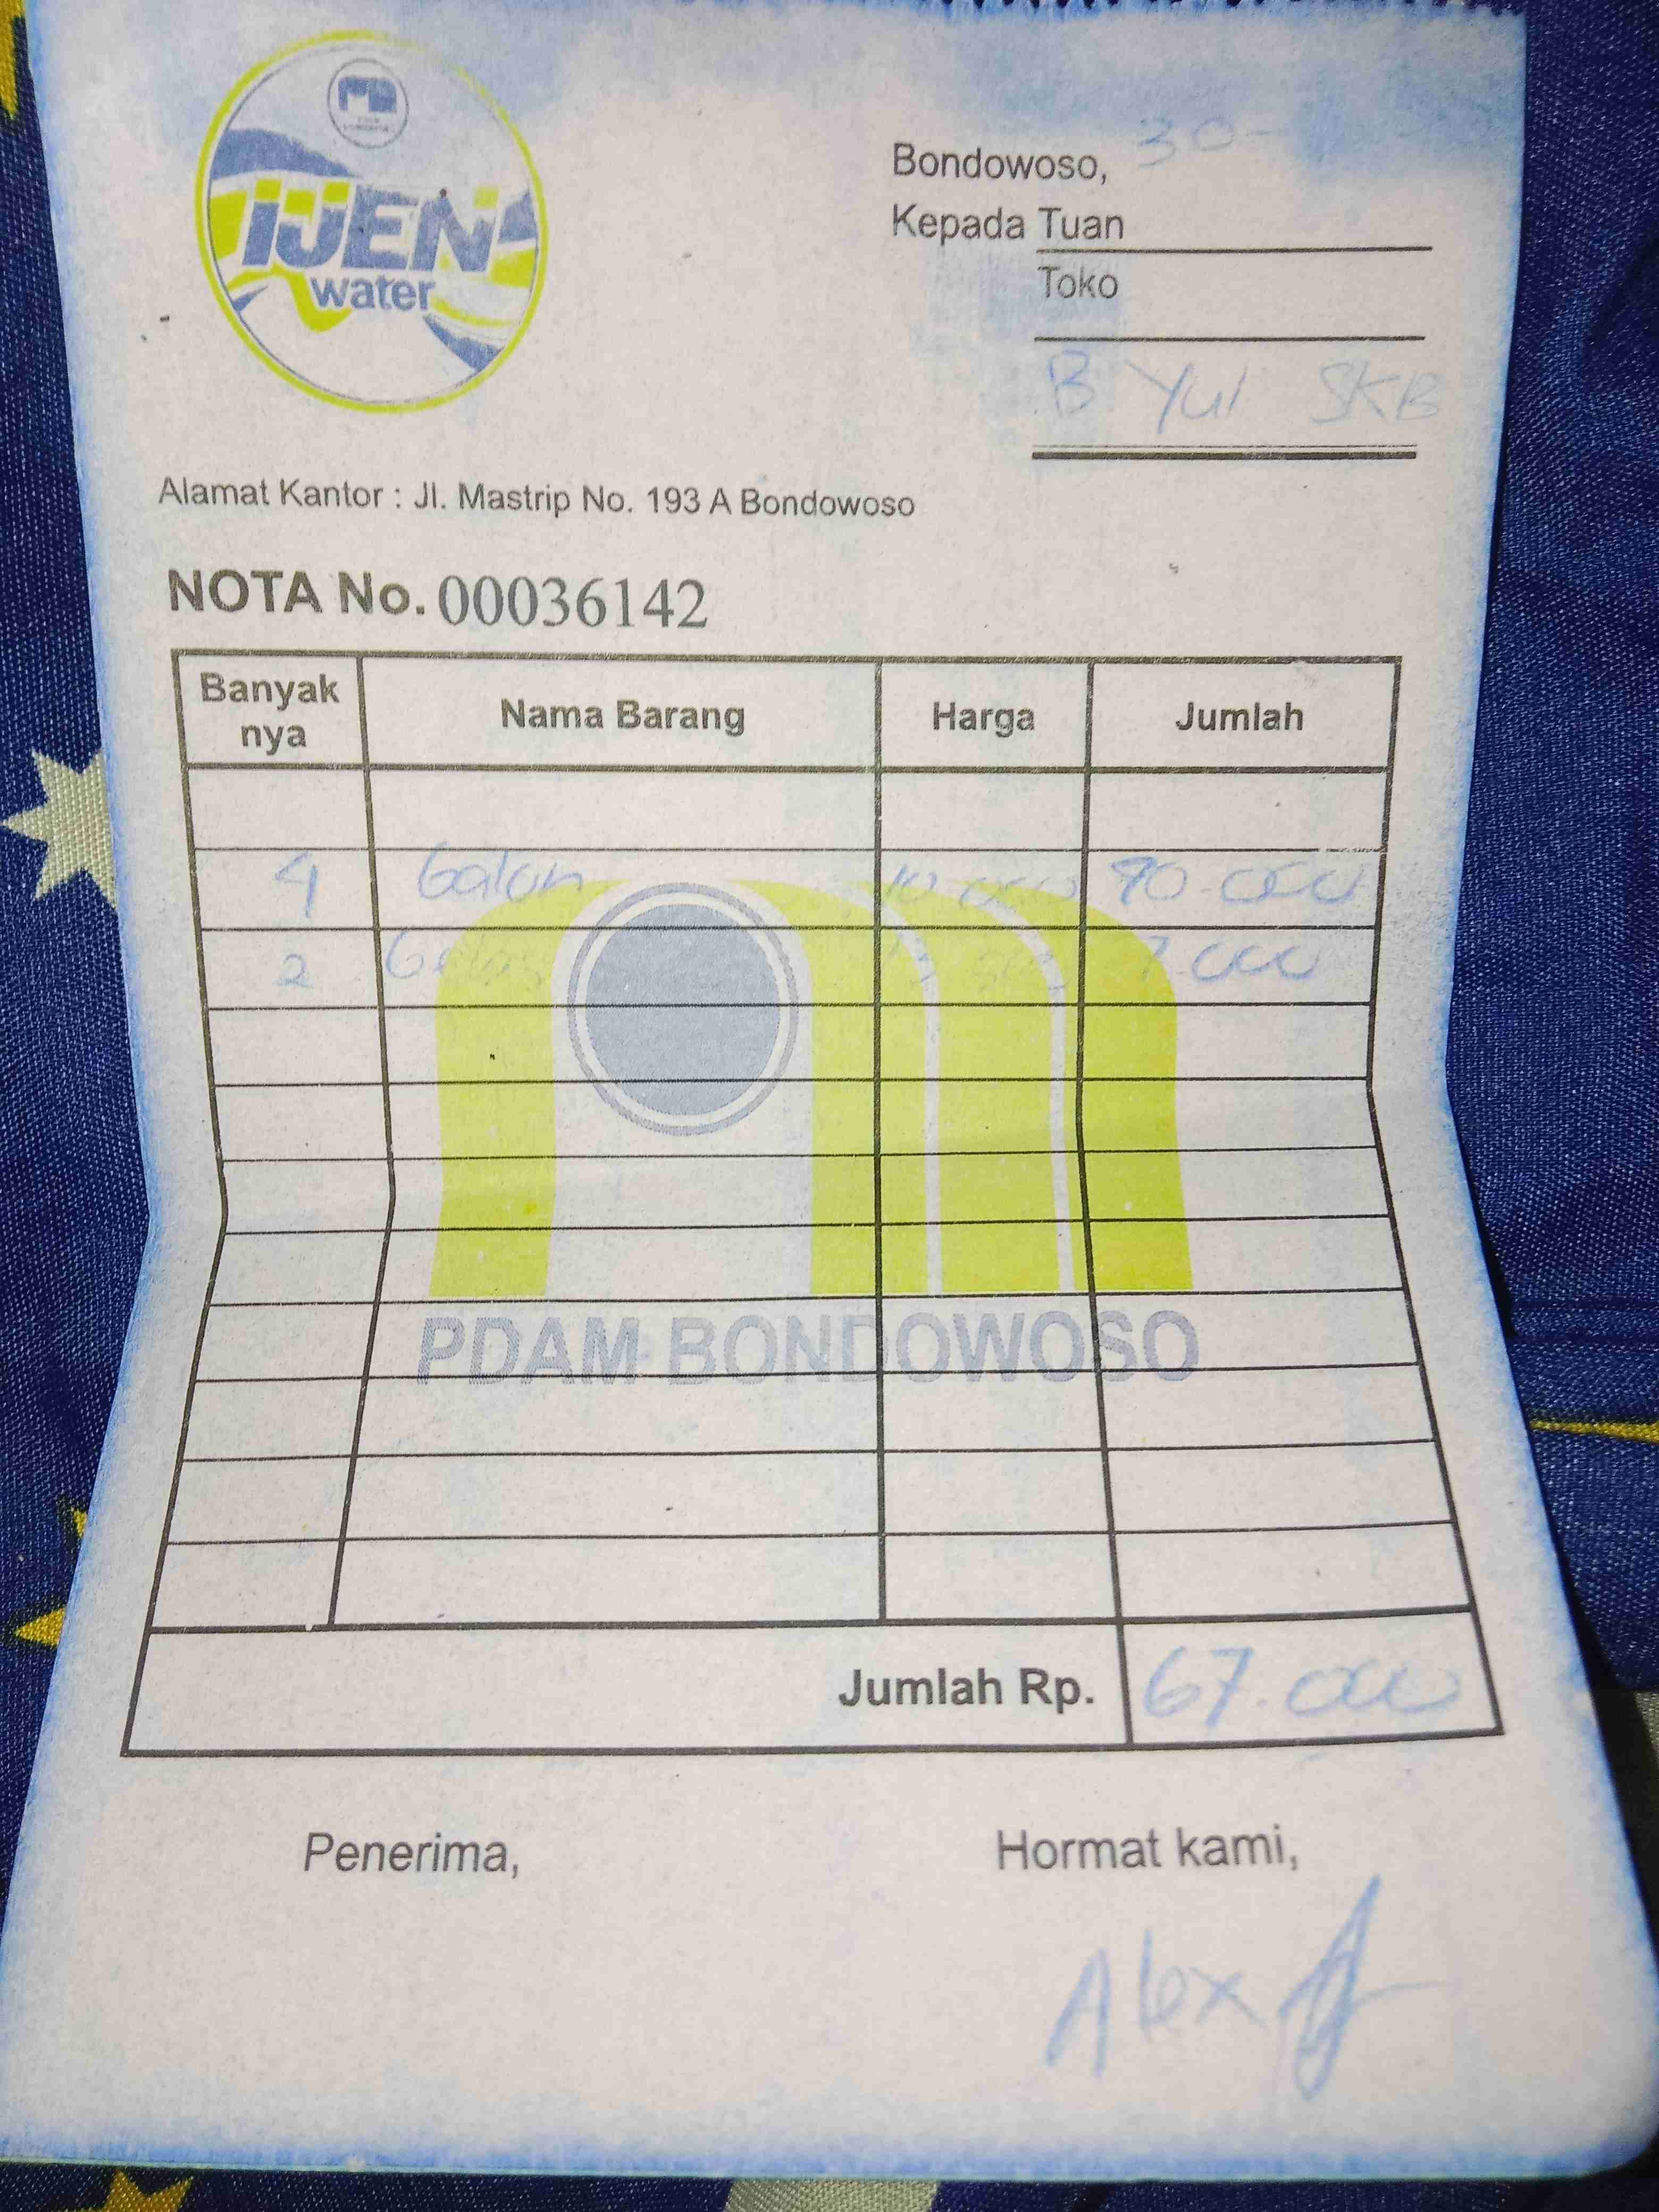 IJEN
water
Bondowoso, 30-
Kepada Tuan
Toko
B Yul SKB
Alamat Kantor : Jl. Mastrip No. 193 A Bondowoso
NOTA No. 00036142
Banyak nya Nama Barang Harga Jumlah
4 Galon 10 000
2 Gelas
PDAM BONDOWOSO
Jumlah Rp. 67.000
Penerima, Hormat kami,
Alex